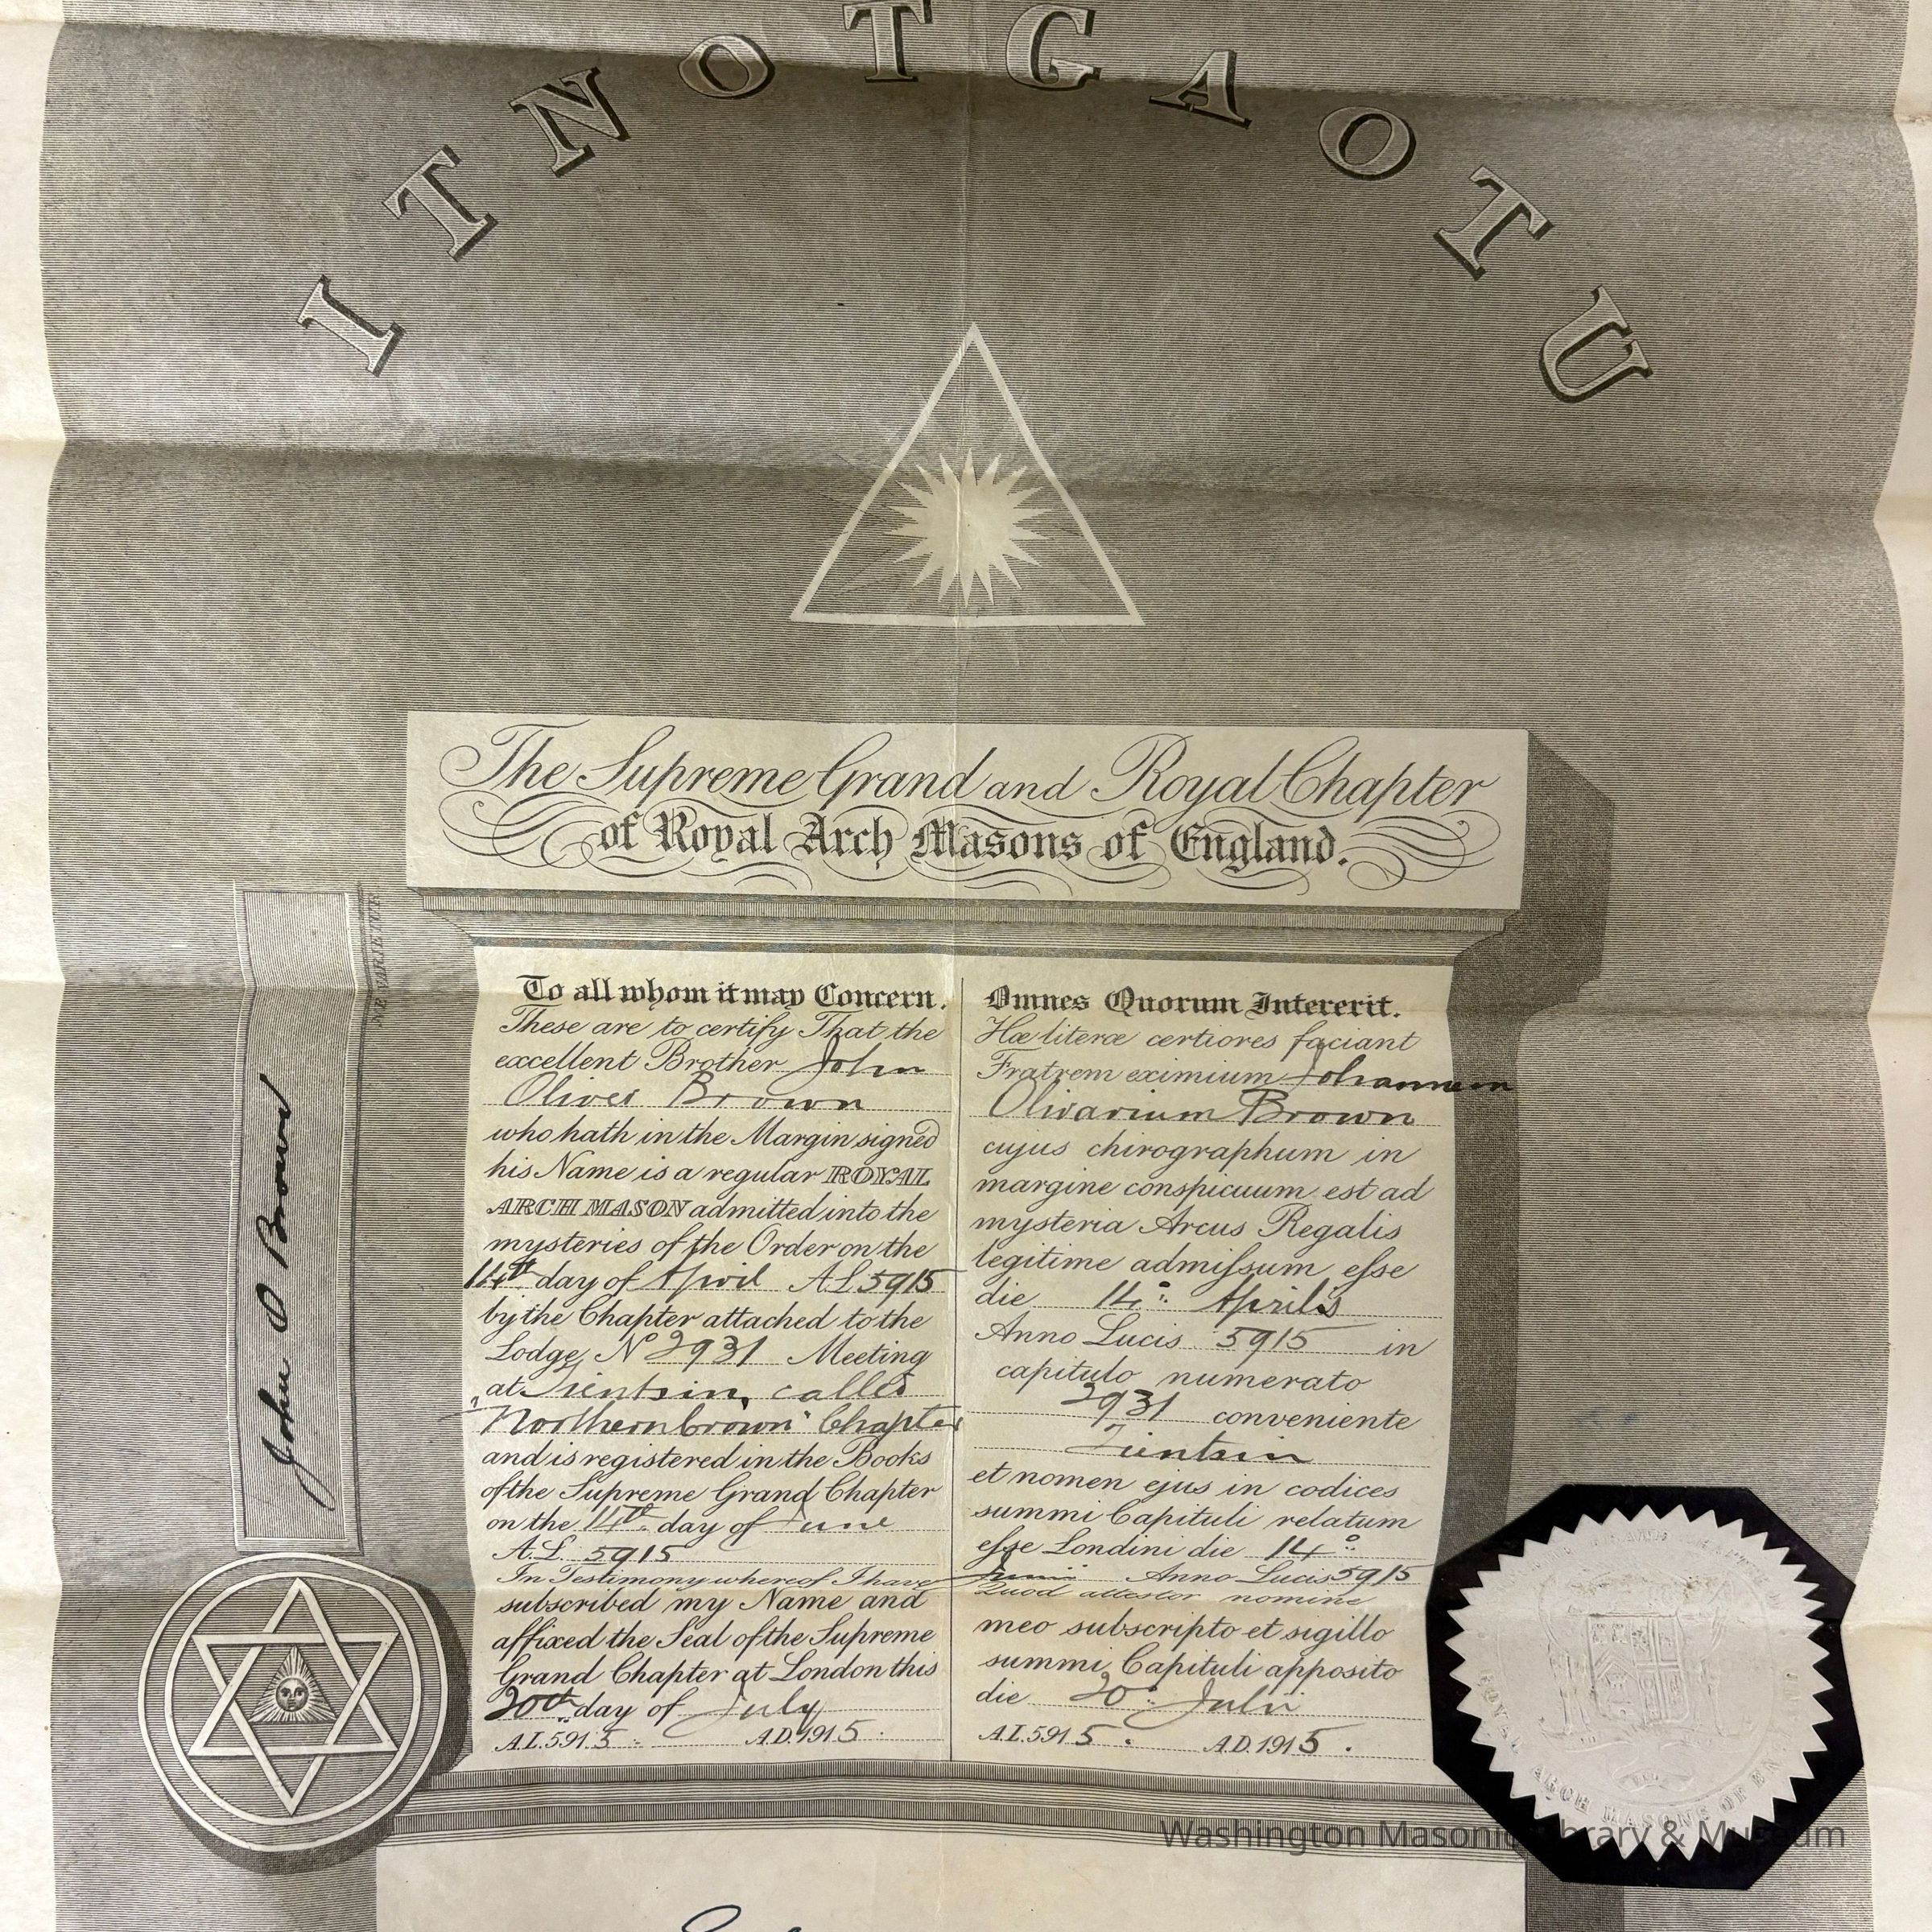 I T N O T G A O T U
The Supreme Grand and Royal Chapter
of Royal Arch Masons of England.
NE VARIETUR
John O Brown
To all whom it may Concern.
These are to certify That the
excellent Brother John
Oliver Brown
who hath in the Margin signed
his Name is a regular ROYAL
ARCH MASON admitted into the
mysteries of the Order on the
14th day of April A.L. 5915
by the Chapter attached to the
Lodge, No 2931 Meeting
at Tientsin, called
"Northern Crown" Chapter
and is registered in the Books
of the Supreme Grand Chapter
on the 14th day of June
A.L. 5915
In Testimony whereof I have
subscribed my Name and
affixed the Seal of the Supreme
Grand Chapter at London this
20th day of July
A.L. 5915 A.D. 1915.
Omnes Quorum Intererit.
Hæ literæ certiores faciant
Fratrem eximium Johannem
Olivarium Brown
cujus chirographum in
margine conspicuum est ad
mysteria Arcus Regalis
legitime admiſsum eſse
die 14o Aprilis
Anno Lucis 5915 in
capitulo numerato
2931 conveniente
Tientsin
et nomen ejus in codices
summi Capituli relatum
eſse Londini die 14o
Junii Anno Lucis 5915
Quod attestor nomine
meo subscripto et sigillo
summi Capituli apposito
die 20o Julii
A.L. 5915. A.D. 1915.
ARCH MASONS OF EN
Washington Masonic Library & Museum